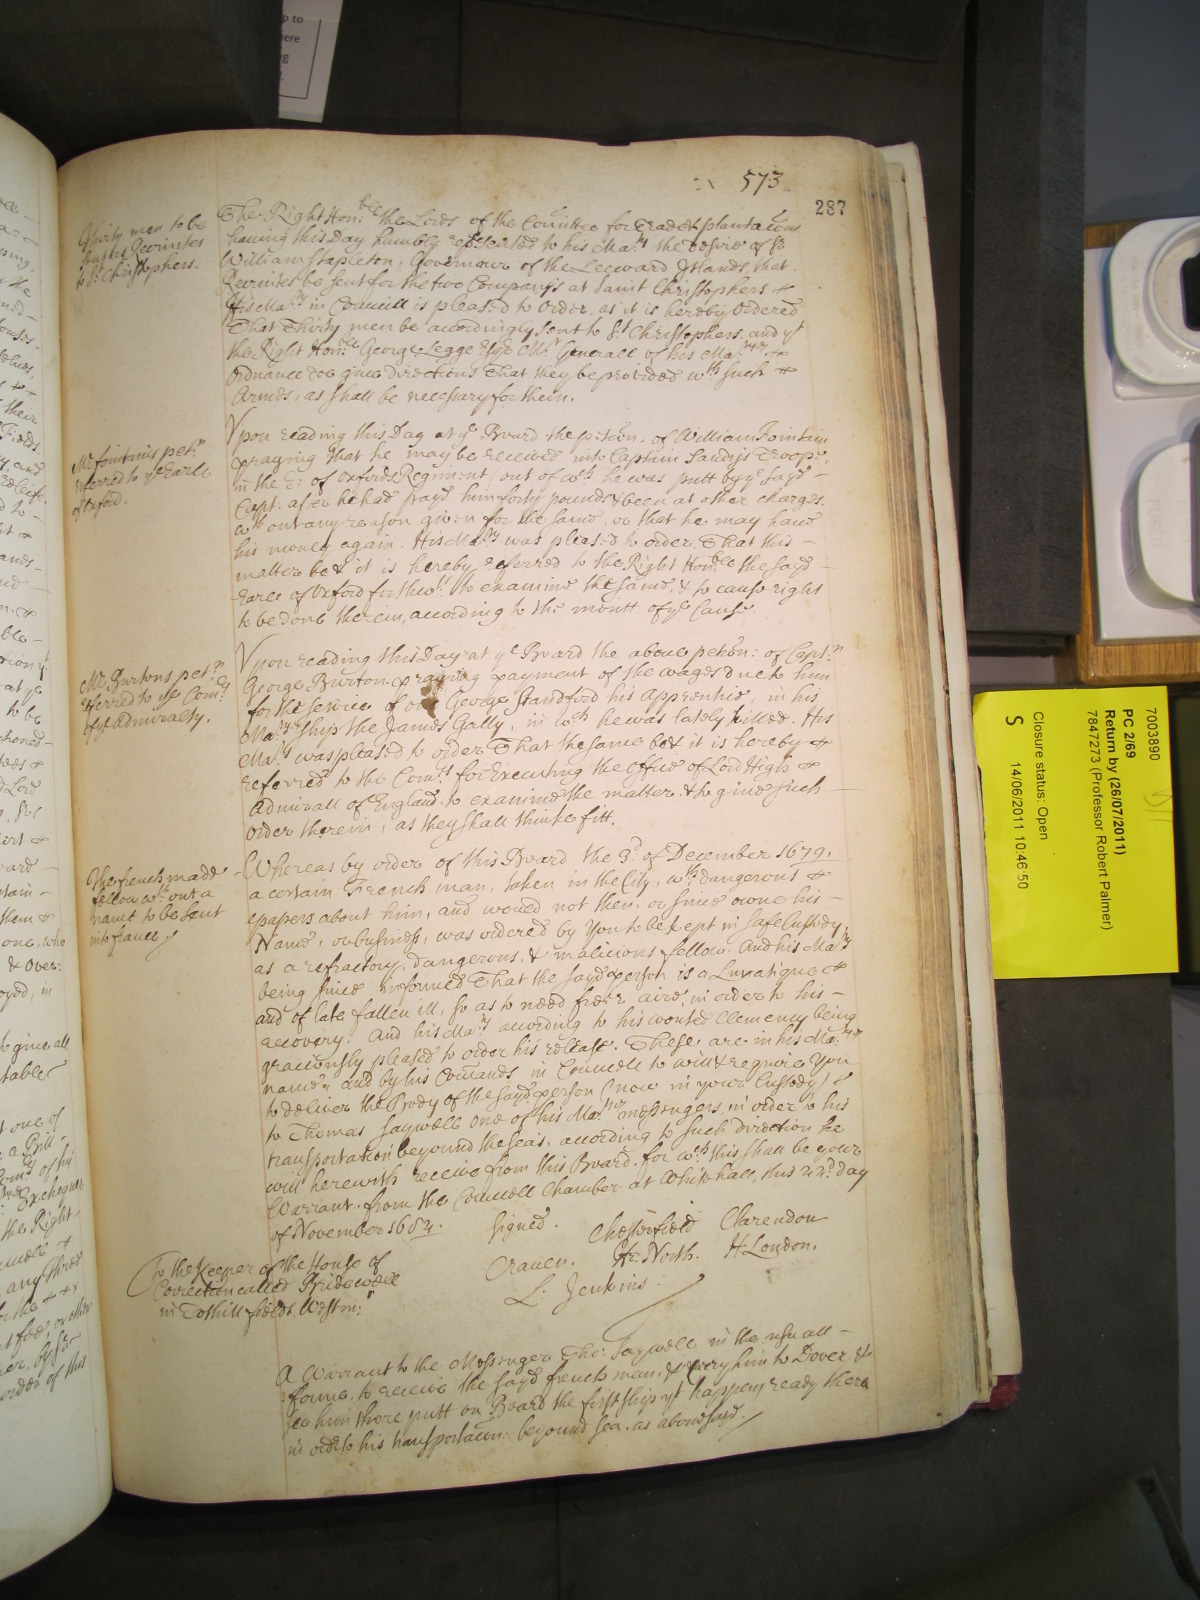 573
287
Thirty men to be
sent as Recruites
to St. Christophers.
The Right Honble the Lords of the Comittee for Trade & plantacons
having this Day humbly represented to his Maty the desire of Sr
William Stapleton, Governour of the Leeward Islands, that
Recruites be sent for the two Companys at Saint Christophers
His Maty in Councill is pleased to Order, as it is hereby Ordered
That Thirty men be accordingly sent to St Christophers, and yt
the Right Honble George Legge Esqr Mr Generall of his Matys
Ordnance doe give directions That they be provided wth such
Armes, as shall be necessary for them.
Mr fountains petn
referred to ye Earle
of Oxford.
Vpon reading this Day at ye Board the peticon: of William Fountain
praying that he may be received into Captain Sandys Troope,
in the E: of Oxfords Regiment (out of wch he was putt by ye sayd
Capt: after he had payd him forty pounds & been at other charges
wthout any reason given for the same, or that he may have
his money again. His Maty was pleased to order, That this
matter be & it is hereby referred to the Right Honble the sayd
Earle of Oxford forthwth to examine the same, & to cause right
to be done therein, according to the meritt of ye Cause.
Mr Burtons petn
referred to ye Comrs
of ye Admiralty.
Vpon reading this Day at ye Board the above peticon: of Captn
George Burton praying payment of the wages due to him
for the service of one George Standford his apprentice, in his
Matys ship the James Gally, in wch he was lately killed. His
Maty was pleased to order That the same be & it is hereby
referred to the Comrs for Executing the Office of Lord High
Admirall of England, to examine the matter & to give such
order therein, as they shall thinke fitt.
The french madd
fellow wthout a
name to be sent
into france
Whereas by order of this Board the 3d of December 1679,
a certain French man, taken in the City, wth dangerous
papers about him, and would not then, or since owne his
Name, or business, was ordered by You to be kept in safe Custody
as a refractory, dangerous, & malicious fellow. And his Maty
being since informed That the sayd person is a Lunatique
and of late fallen ill, so as to need freer aire, in order to his
recovery. And his Maty according to his wonted Clemency being
graciously pleased to order his release. These are in his Matys
name, and by his Comands in Councell to will & require You
to deliver the Body of the sayd person (now in your Custody)
to Thomas Saywell one of his Matys messengers, in order to his
transportation beyound the seas, according to such direction he
will herewith receive from this Board. for wch this shall be your
Warrant. from the Councell Chamber at Whitehall, this 22d day
of November 1682.
Signed.
Chesterfield
Clarendon
Craven.
Fr: North.
H: London.
L. Jenkins.
To the Keeper of the House of
Correction called Bridewell
in Tothill fields Westmr
A Warrant to the Messenger Tho: Saywell in the usuall
forme, to receive the sayd french man, & carry him to Dover &
see him there putt on Board the first ship yt happens ready there
in order to his transportacon: beyound sea, as abovesayd.
7003890
PC 2/69
Return by (26/07/2011)
7847273 (Professor Robert Palmer)
Closure status: Open
S 14/06/2011 10:46:50